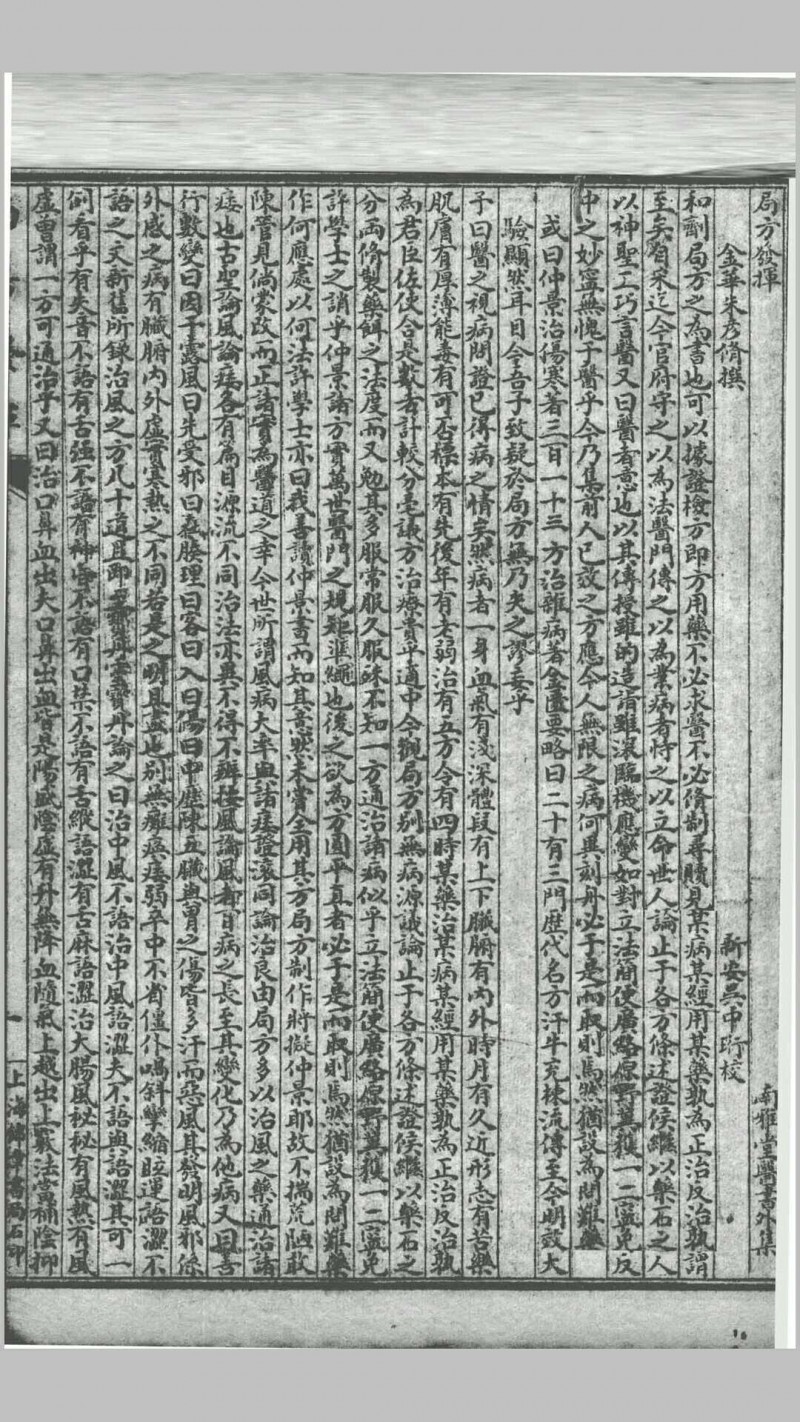 局方發揮 南雅堂醫書外集
金華朱彥脩撰 新安吳中珩校
和劑局方之為書也可以據證檢方即方用藥不必求醫不必脩制尋贖見某病某經用某藥孰為正治反治孰謂
至矣自宋迄今官府守之以為法醫門傳之以為業病者恃之以立命世人論止于各方條述證候繼以藥石之人
以神聖工巧言醫又曰醫者意也以其傳授雖的造詣雖深臨機應變如對立法簡便廣絡原野冀獲一二寧免反
中之妙寧無愧于醫乎今乃集前人已效之方應今人無限之病何異刻舟必于是而取則焉然猶設為問難藥
或曰仲景治傷寒著三百一十三方治雜病著金匱要略曰二十有三門歷代名方汗牛充棟流傳至今明效大
驗顯然耳目今吾子致疑於局方無乃失之謬妄乎
予曰醫之視病問證已得病之情矣然病者一身血氣有淺深體段有上下臟腑有內外時月有久近形志有苦樂
肌膚有厚薄能毒有可否標本有先後年有老弱治有五方令有四時某藥治某病某經用某藥孰為正治反治孰
為君臣佐使合是數者計較分毫議方治療貴乎適中今觀局方別無病源議論止于各方條述證候繼以藥石之
分兩脩製藥餌之法度而又勉其多服常服久服殊不知一方通治諸病似乎立法簡便廣絡原野冀獲一二寧免
許學士之誚乎仲景諸方實萬世醫門之規矩準繩也後之欲為方圓平直者必于是而取則焉然猶設為問難藥
作何應處以何法許學士亦曰我善讀仲景書而知其意然未嘗全用其方局方制作將擬仲景耶故不揣荒陋敢
陳管見倘蒙改而正諸實為醫道之幸今世所謂風病大率與諸痿證滾同論治良由局方多以治風之藥通治諸
痿也古聖論風論痿各有篇目源流不同治法亦異不得不辨按風論風者百病之長至其變化乃為他病又曰善
行數變曰因于露風曰先受邪曰在腠理曰客曰入曰傷曰中歷陳五臟與胃之傷皆多汗而惡風其發明風邪係
外感之病有臟腑內外虛實寒熱之不同若是之明且盡也別無癱瘓痿弱卒中不省僵仆喎斜攣縮眩運語澀不
語之文新舊所錄治風之方凡十道且即至寶丹靈寶丹論之曰治中風不語治中風語澀夫不語與語澀其可一
例看乎有失音不語有舌强不語有神昏不語有口禁不語有舌縱語澀有舌麻語澀治大腸風祕祕有風熱有風
虛曾謂一方可通治乎又曰治口鼻血出夫口鼻出血皆是陽盛陰虛有升無降血隨氣上越出上竅法當補陰抑
一 上海錦章書局石印